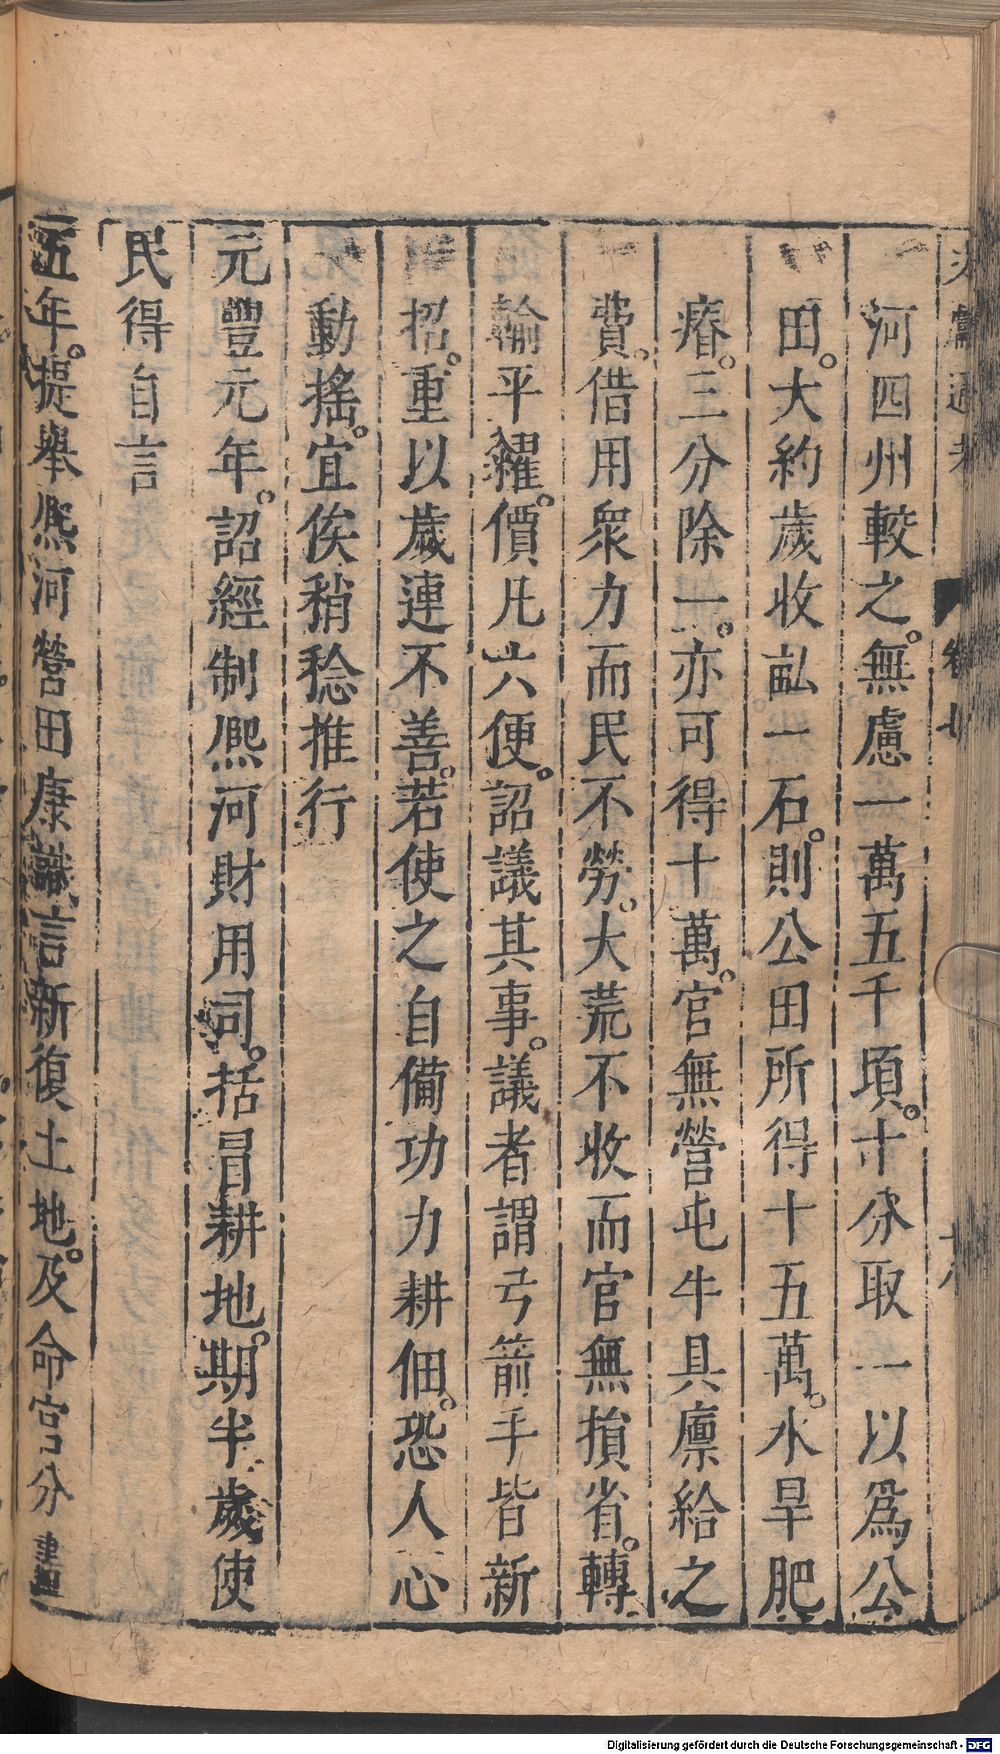 文獻通考 卷七
河四州較之。無慮一萬五千頃。十分取一以爲公
田。大約歲收畝一石。則公田所得十五萬。水旱肥
瘠。三分除一。亦可得十萬。官無營屯牛具廩給之
費。借用衆力而民不勞。大荒不收而官無損省。轉
輸平糴。價凡六便。詔議其事。議者謂弓箭手皆新
招。重以歲連不善。若使之自備功力耕佃。恐人心
動搖。宜俟稍稔推行
元豐元年。詔經制熙河財用司。括冒耕地。期半歲使
民得自言
五年。提舉熙河營田康識言新復土地。及命官分畫
Digitalisierung gefördert durch die Deutsche Forschungsgemeinschaft - DFG